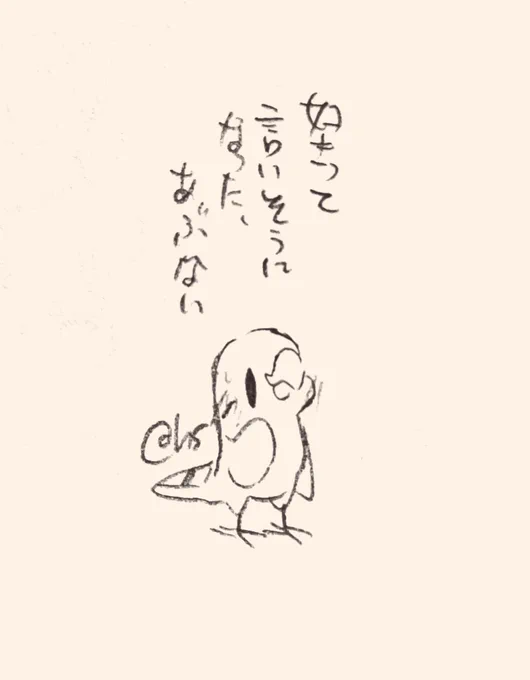 好って
言いそうに
なった、
あぶない